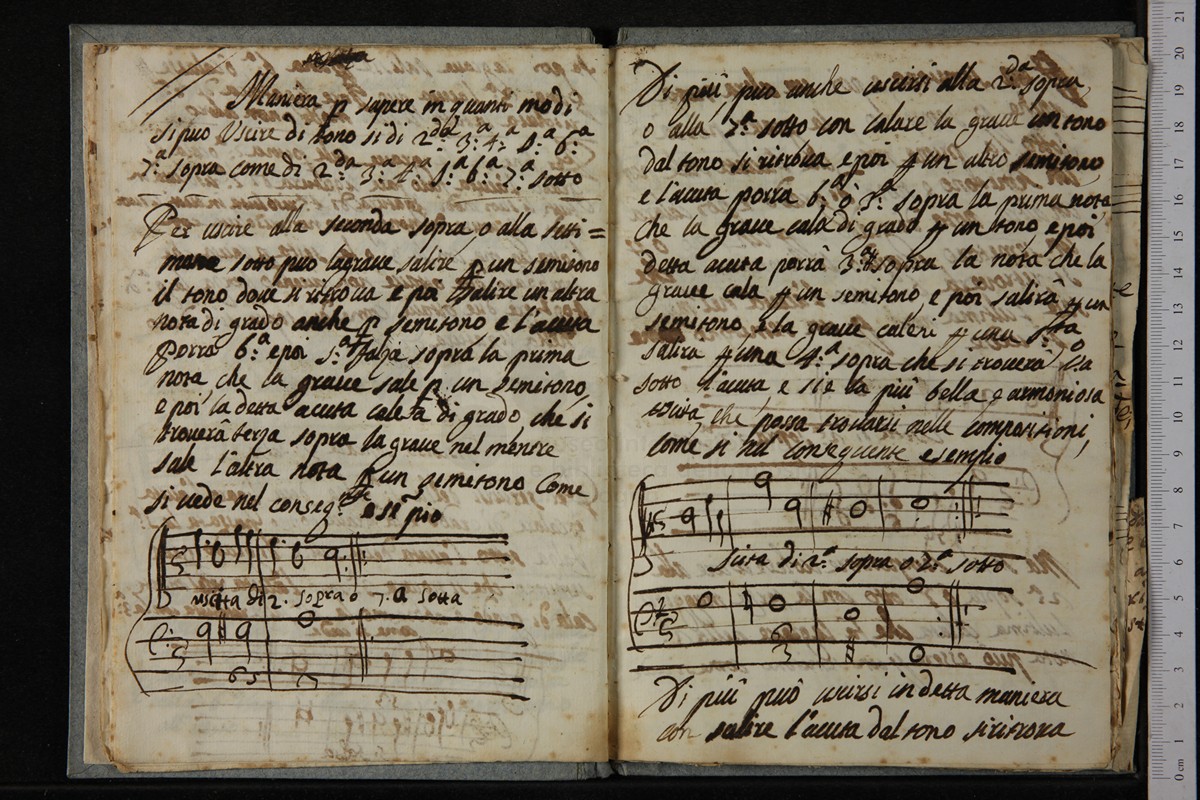 Maniera p sapere in quanti modi
si può Uscire di tono si di 2.da 3.a 4.a 5.a 6.a
7.a sopra come di 2.da 3.a 4.a 5.a 6.a 7.a sotto
Per usire alla seconda sopra o alla setti=
mana sotto può la grave salire p un semitono
il tono dove si ritrova e poi salire un altra
nota di grado anche p semitono e l'acuta
Porrà 6.a e poi 5.a falza sopra la prima
nota che la grave sale p un semitono,
e poi la detta acuta calerà di grado, che si
troverà terza sopra la grave nel mentre
sale l'altra nota p un semitono Come
si vede nel conseg.te esempio
uscita di 2. sopra o 7.a sotta
6 5
Di più può anche uscirsi alla 2.da sopra,
o alla 7.a sotto con calare la grave un tono
dal tono si ritrova e poi p un altro semitono
e l'acuta porrà 6.a ò 5.a sopra la prima nota
che la grave cala di grado p un tono e poi
detta acuta porrà 3.a sopra la nota che la
grave cala p un semitono, e poi salirà p un
semitono e la grave caleri p una 5.ta o
salira p una 4.a sopra che si troverà
sotto l'acuta e si è la più bella e armoniosa
uscita che possa trovarsi nelle composizioni,
come si nel conseguente esempio
scita di 2.a sopra o 7.a sotto
3
Di più può uscirsi in detta maniera
con salire l'acuta dal tono si ritrova